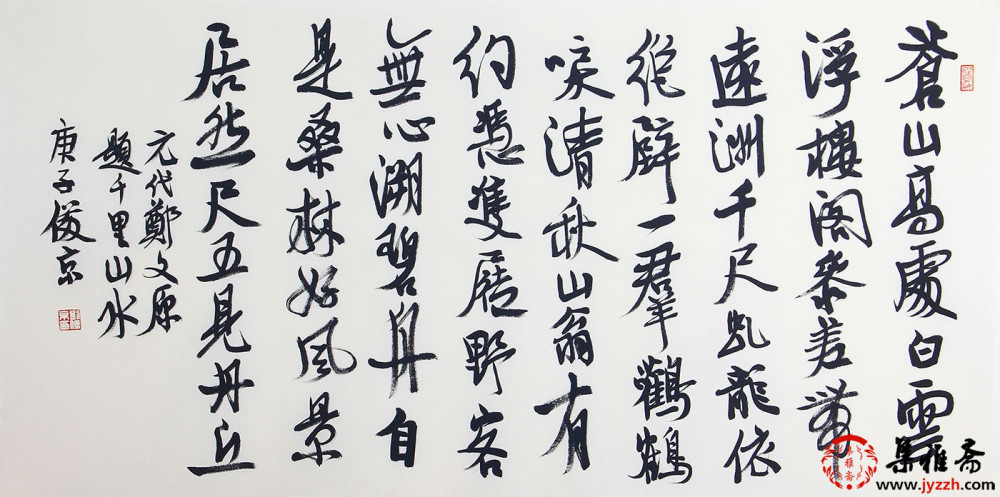 蒼山高處白雲
浮樓閣參差帶
遠洲千尺虬龍依
絕壁一羣鸛鶴
唳清秋山翁有
約憑隻屐野客
無心溯碧舟自
是桑林好風景
居然尺五見丹丘
元代鄭文原
題千里山水
庚子俊京
集雅斋
www.jyzzh.com